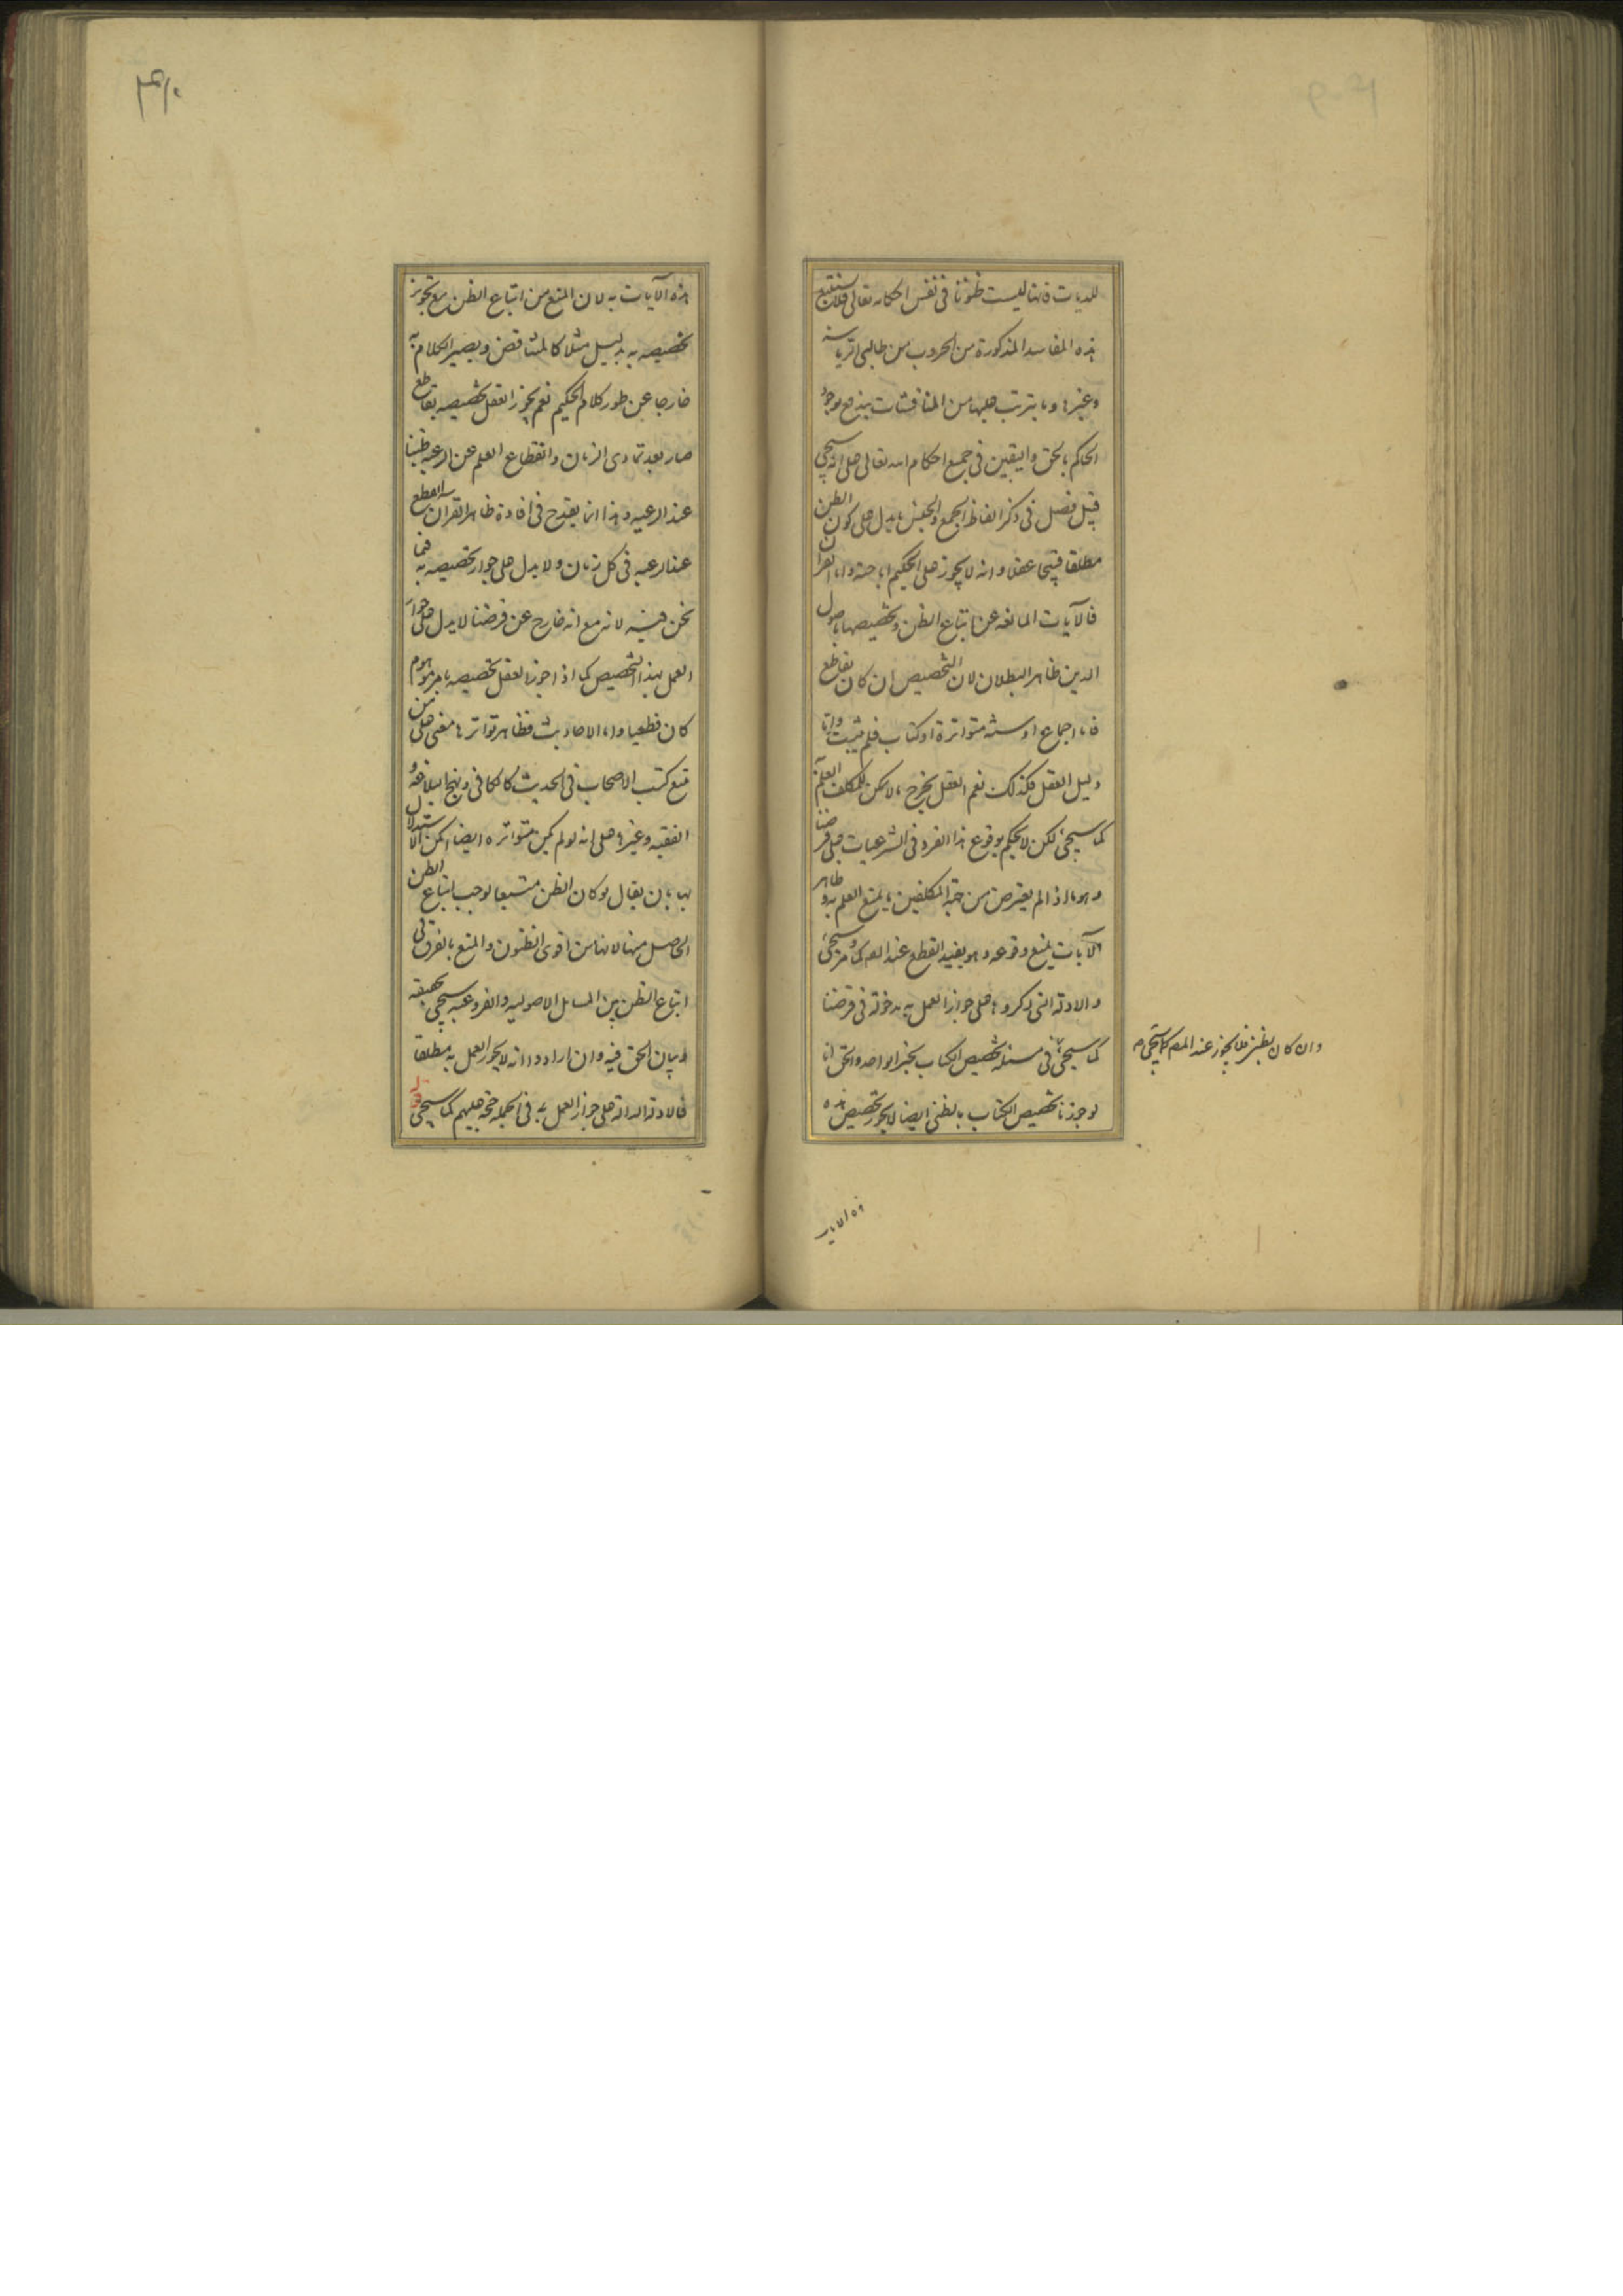 للديات فانها ليست ظنونا في نفس احكامه تعالى فلا تستتبع
هذه المفاسد المذكورة من الحروب من طالبي الرياسة
وغيرها وما يترتب عليها من المناقشات يندفع بوجود
الحاكم بالحق واليقين في جميع احكام الله تعالى على انه سيجي
قبيل فصل في ذكر الفاظ الجمع والجنس ما يدل على كون الظن
مطلقا قبيحا عقلا وانه لا يجوز على الحكيم اباحته واما القران
فالآيات المانعة عن اتباع الظن وتخصيصها باصول
الدين ظاهر البطلان لان التخصيص ان كان بقاطع
فاما اجماع او سنة متواترة او كتاب فلم يثبت واما
دليل العقل فكذلك نعم العقل يخرج ما لا يمكن للمكلف العلم به
كما سيجئ لكن لا يحكم بوقوع هذا الفرد في الشرعيات على فرضنا
وهو ما اذا لم يعترض من جهة المكلفين ما يمنع العلم به وظاهر
الآيات يمنع وقوعه وهو يفيد القطع عند المص كما مر وسيجئ
والادلة التي ذكروها على جواز العمل به مدخولة في فرضنا
كما سيجئ في مسئلة تخصيص الكتاب بخبر الواحد والحق انا
لو جوزنا تخصيص الكتاب بالظني ايضا لا يجوز تخصيص هذه
وان كان بظني فلا يجوز عند المص كما سيجئ م
هذه الايات
هذه الآيات به لان المنع من اتباع الظن مع تجويز
تخصيصه به بدليل مثلا كالمتناقض ويصير الكلام به
خارجا عن طور كلام الحكيم نعم يجوز العقل تخصيصه بقاطع
صار بعد تمادى الزمان وانقطاع العلم عن الرعية ظنيا
عند الرعية وهذا انما يقدح في افادة ظاهر القران القطع
عند الرعية في كل زمان ولا يدل على جواز تخصيصه به فيما
نحن فيه لانه مع انه خارج عن فرضنا لا يدل على جواز
العمل بهذا التخصيص كما اذا جوز العقل تخصيصه بامر موهوم
كان قطعيا واما الاحاديث فظاهر تواترها معنى على من
تتبع كتب الاصحاب في الحديث كالكافي ونهج البلاغة و
الفقيه وغيرها على انه لو لم يكن متواترة ايضا امكن الاستدلال
بها بان يقال لو كان الظن متبعا لوجب اتباع الظن
الحاصل منها لانها من اقوى الظنون والمنع بالفرق في
اتباع الظن بين المسايل الاصولية والفروعية سيجي تحقيقه
وبيان الحق فيه وان ارادوا انه لا يجوز العمل به مطلقا
فالادلة الدالة على جواز العمل به في الجملة حجة عليهم كما سيجي